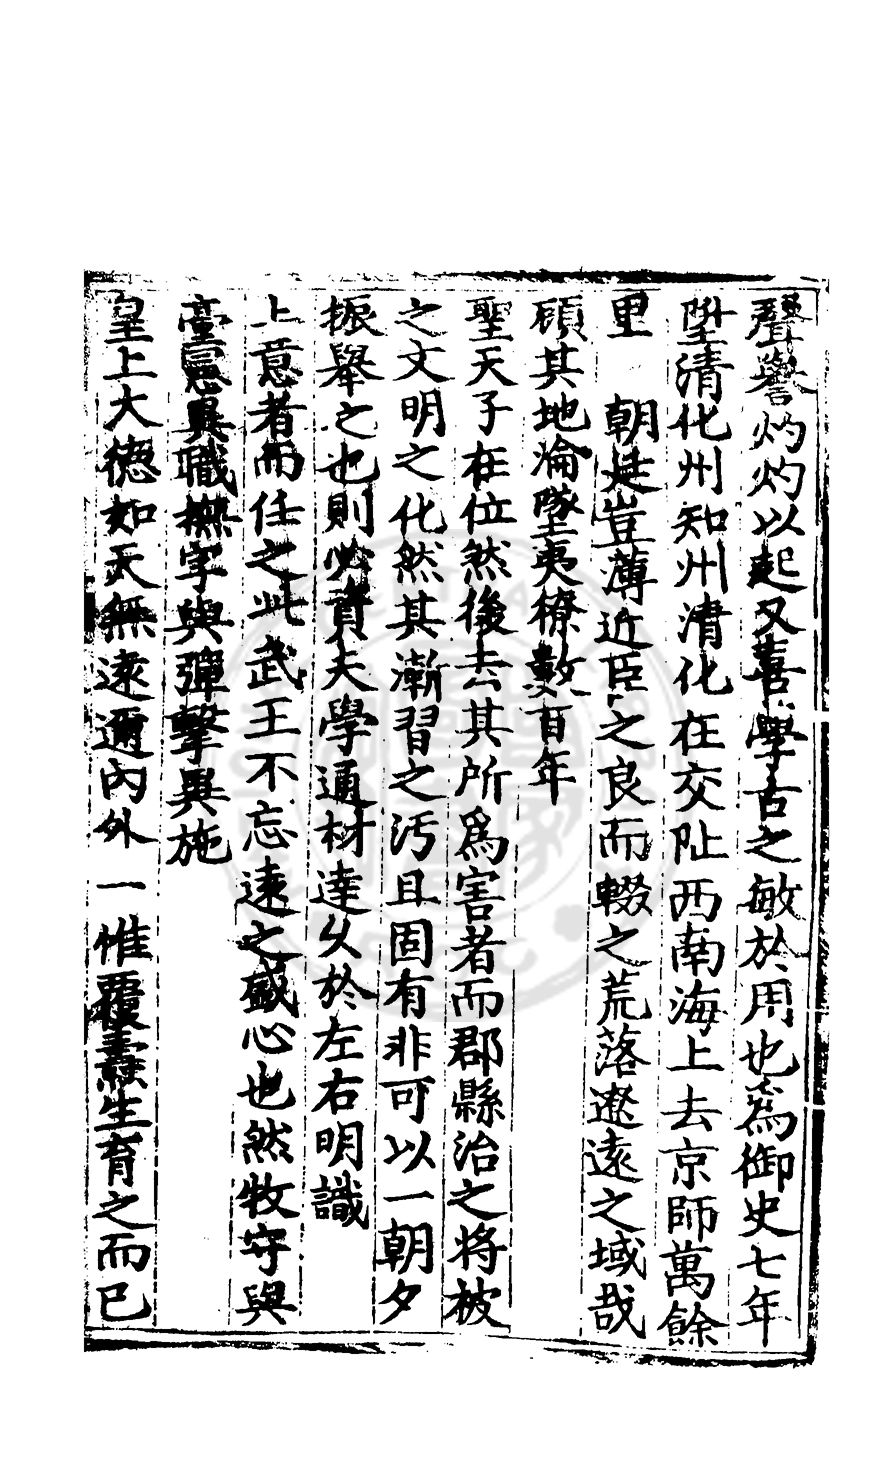 聲譽灼灼以起又喜學古之敏於用也為御史七年
陞清化州知州清化在交阯西南海上去京師萬餘
里　朝廷豈薄近臣之良而輟之荒落遼遠之域哉
顧其地淪墜夷獠數百年
聖天子在位然後去其所為害者而郡縣治之将被
之文明之化然其漸習之汚且固有非可以一朝夕
振舉之也則必資夫學通材達乆於左右明識
上意者而任之此武王不忘遠之盛心也然牧守與
臺憲異職撫字與彈擊異施
皇上大德如天無遠邇內外一惟覆燾生育之而已